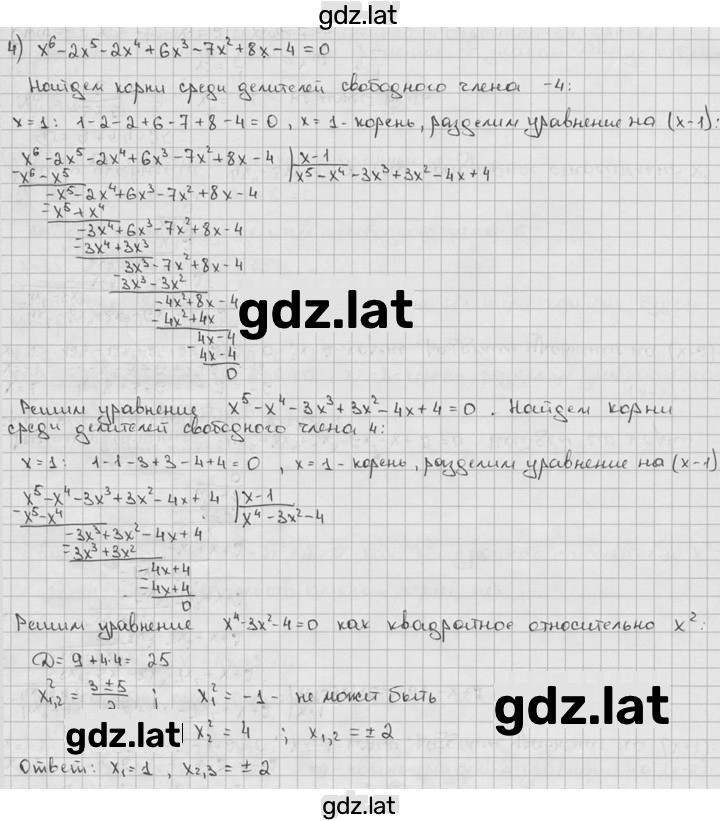 gdz.lat
4) x⁶-2x⁵-2x⁴+6x³-7x²+8x-4=0
Найдем корни среди делителей свободного члена -4:
x=1: 1-2-2+6-7+8-4=0, x=1- корень, разделим уравнение на (x-1):
x⁶-2x⁵-2x⁴+6x³-7x²+8x-4 | x-1
x⁶-x⁵ | x⁵-x⁴-3x³+3x²-4x+4
-x⁵-2x⁴+6x³-7x²+8x-4
-x⁵+x⁴
-3x⁴+6x³-7x²+8x-4
-3x⁴+3x³
3x³-7x²+8x-4
3x³-3x²
-4x²+8x-4
-4x²+4x
gdz.lat
4x-4
4x-4
0
Решим уравнение x⁵-x⁴-3x³+3x²-4x+4=0. Найдем корни
среди делителей свободного члена 4:
x=1: 1-1-3+3-4+4=0, x=1- корень, разделим уравнение на (x-1)
x⁵-x⁴-3x³+3x²-4x+4 | x-1
x⁵-x⁴ | x⁴-3x²-4
-3x³+3x²-4x+4
-3x³+3x²
-4x+4
-4x+4
0
Решим уравнение x⁴-3x²-4=0 как квадратное относительно x²:
D=9+4·4=25
x²₁,₂=(3±5)/2; x²₁=-1- не может быть
gdz.lat
gdz.lat
x²₂=4; x₁,₂=±2
Ответ: x₁=1, x₂,₃=±2
gdz.lat